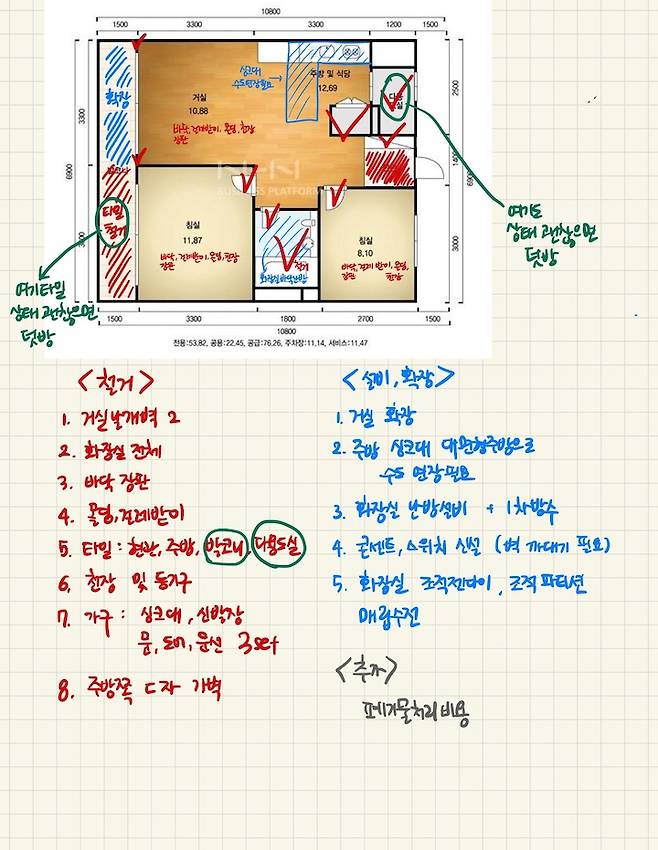 10800
1500 3300 3300 1200 1500
3300
6900
3000
2500
1400
6900
3000
확장
거실
10.88
바닥,걸레받이, 몰딩, 천장
장판
싱크대
수도연장필요
주방 및 식당
12.69
타일
철거
침실
11.87
바닥, 걸레받이, 몰딩, 천장
장판
철거
화장실 바닥난방
침실
8.10
바닥, 걸레받이, 몰딩,
장판 천장
여기도
상태 괜찮으면
덧방
여기타일
상태 괜찮으면
덧방
1500 3300 1800 2700 1500
10800
전용:53.82, 공용:22.45, 공급:76.26, 주차장:11.14, 서비스:11.47
<철거>
1. 거실날개벽 2
2. 화장실 전체
3. 바닥 장판
4. 몰딩,걸레받이
5. 타일: 현관, 주방, 발코니, 다용도실
6. 천장 및 등기구
7. 가구: 싱크대, 신발장
문, 도어, 문선 3set
8. 주방쪽 ㄷ자 가벽
<설비, 확장>
1. 거실 확장
2. 주방 싱크대 대면형주방으로
수도 연장필요
3. 화장실 난방설비 + 1차방수
4. 콘센트, 스위치 신설 (벽 까대기 필요)
5. 화장실 조적젠다이, 조적 파티션
매립수전
<추가>
폐기물처리비용